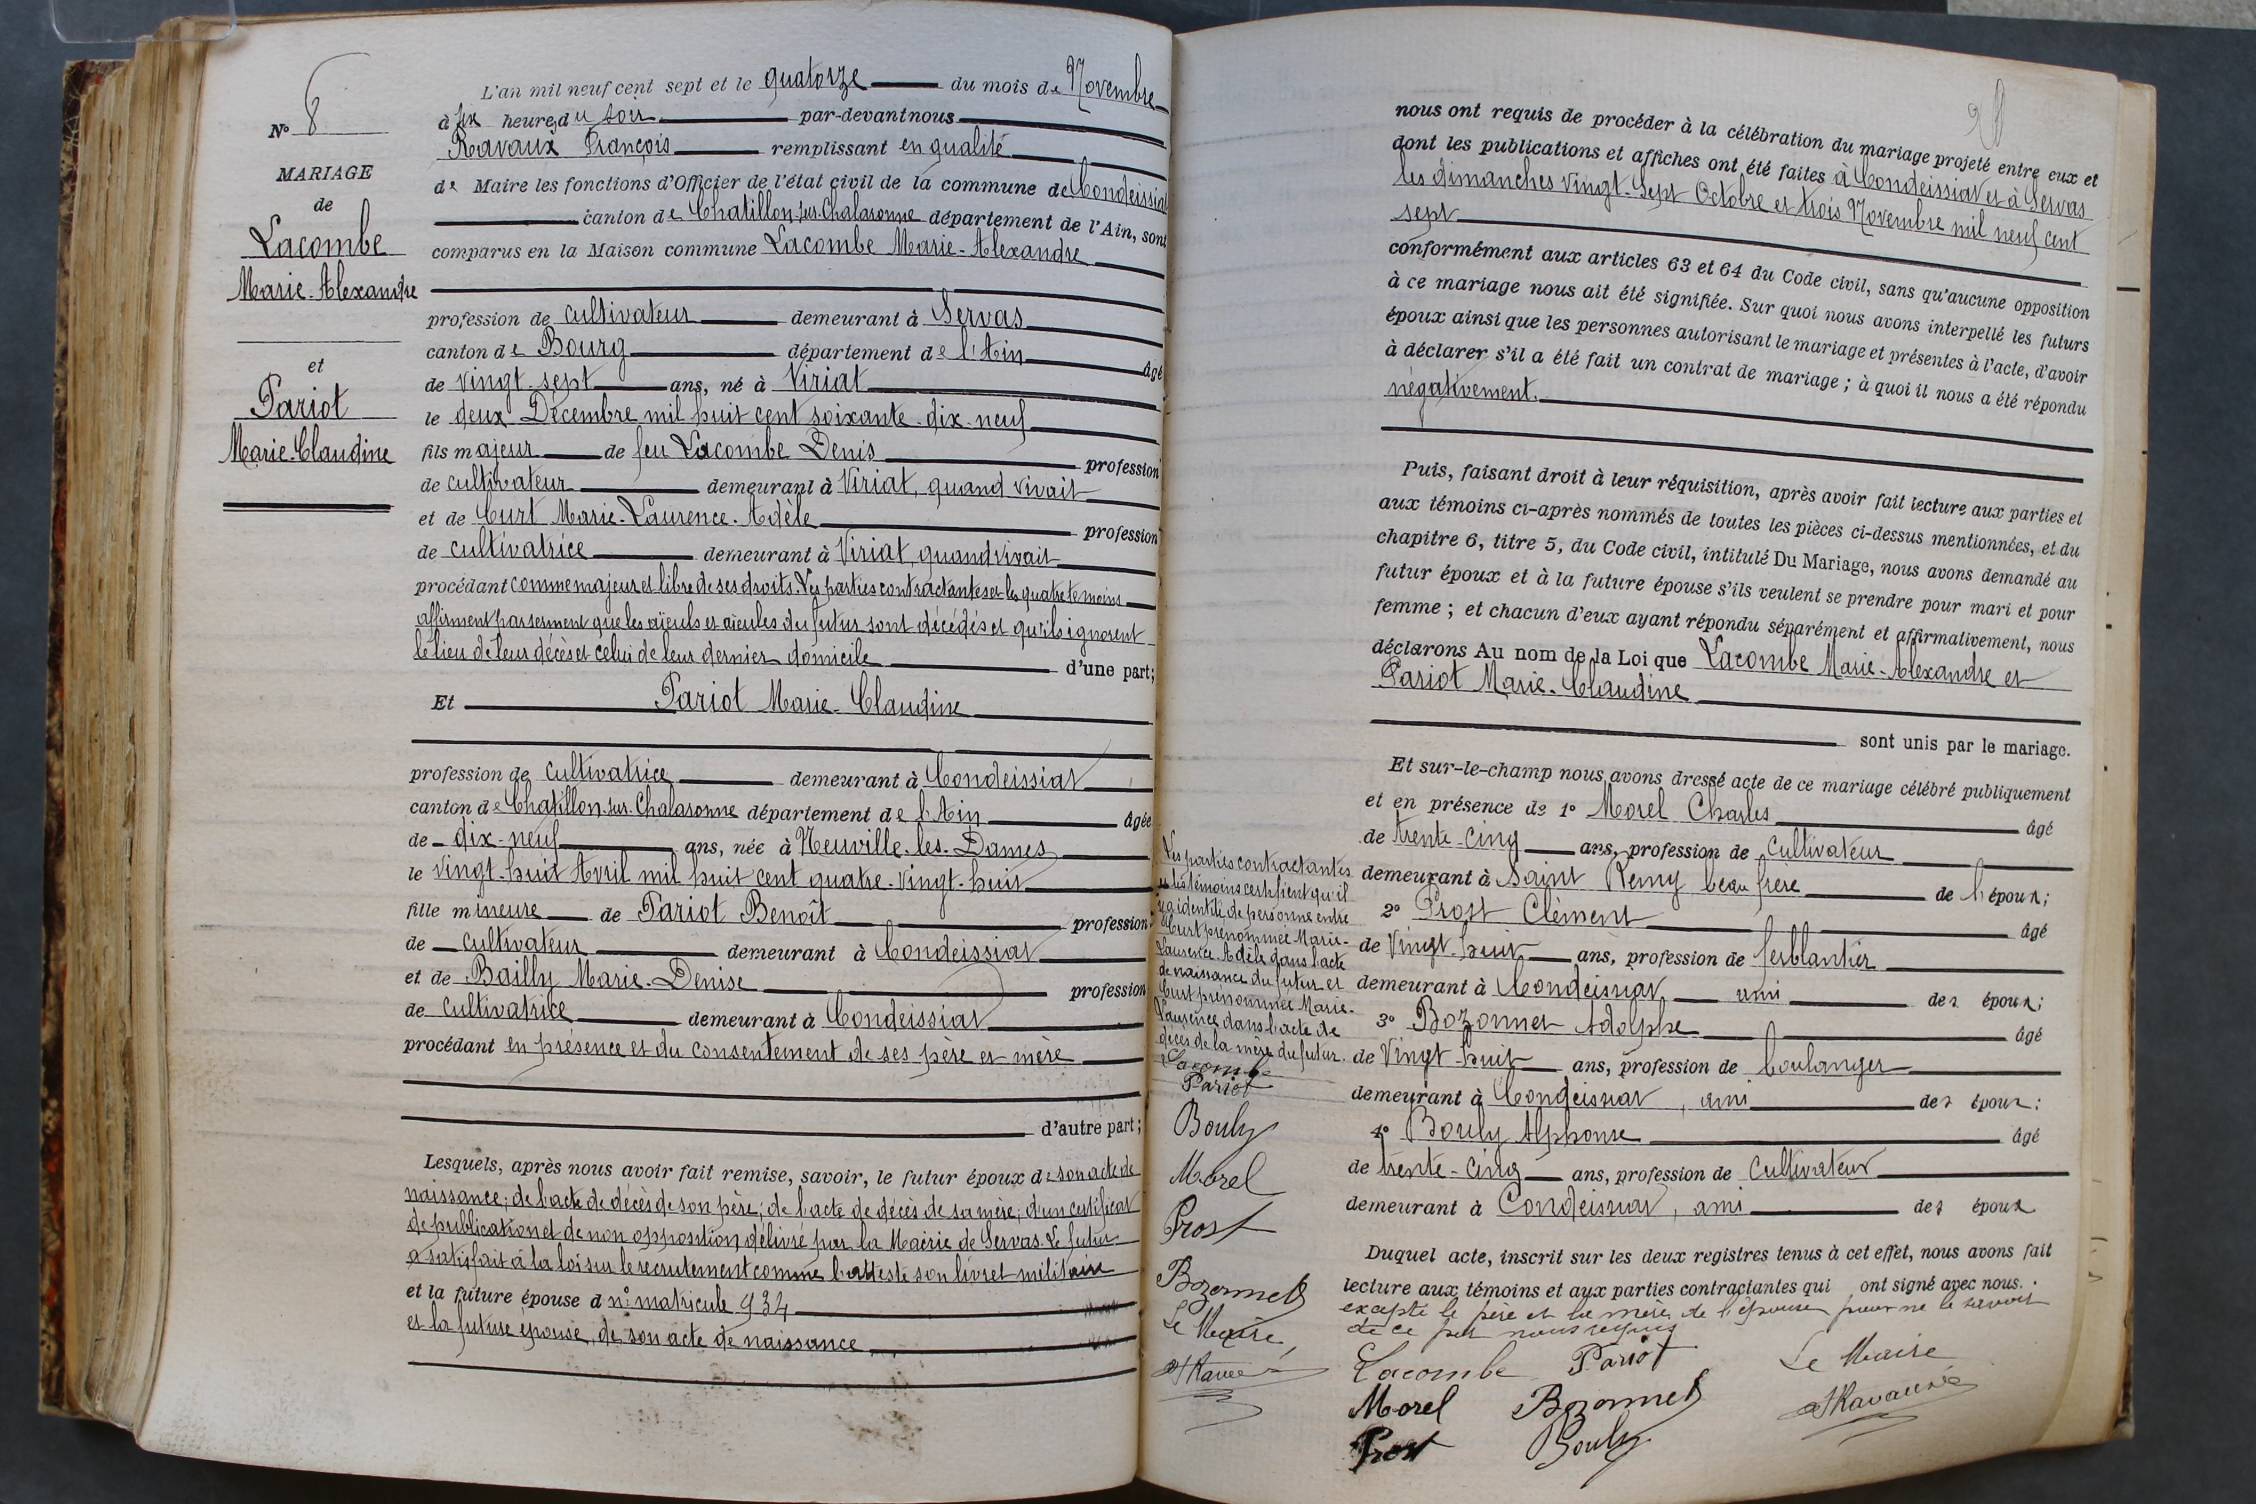 N° 8
MARIAGE
de
Lacombe
Marie-Alexandre
et
Pariot
Marie-Claudine
L'an mil neuf cent sept et le quatorze du mois de Novembre
à six heures du soir par-devant nous
Ravaux François remplissant en qualité
de Maire les fonctions d'Officier de l'état civil de la commune de Condeissiat
canton de Chatillon-sur-Chalaronne département de l'Ain, sont
comparus en la Maison commune Lacombe Marie-Alexandre
profession de cultivateur demeurant à Servas
canton de Bourg département de l'Ain âgé
de vingt-sept ans, né à Viriat
le deux Décembre mil huit cent soixante-dix-neuf
fils majeur de feu Lacombe Denis profession
de cultivateur demeurant à Viriat, quand vivait
et de Curt Marie-Laurence-Adèle profession
de cultivatrice demeurant à Viriat, quand vivait
procédant comme majeur et libre de ses droits. Les parties contractantes et les quatre témoins
affirment par serment que les aïeuls et aïeules du futur sont décédés et qu'ils ignorent
le lieu de leur décès et celui de leur dernier domicile d'une part;
Et Pariot Marie-Claudine
profession de cultivatrice demeurant à Condeissiat
canton de Chatillon-sur-Chalaronne département de l'Ain âgée
de dix-neuf ans, née à Neuville-les-Dames
le vingt-huit Avril mil huit cent quatre-vingt-huit
fille mineure de Pariot Benoît profession
de cultivateur demeurant à Condeissiat
et de Bailly Marie-Denise profession
de cultivatrice demeurant à Condeissiat
procédant en présence et du consentement de ses père et mère
d'autre part;
Lesquels, après nous avoir fait remise, savoir, le futur époux de son acte de
naissance; de l'acte de décès de son père; de l'acte de décès de sa mère; d'un certificat
de publication et de non opposition délivré par la Mairie de Servas. Le futur
a satisfait à la loi sur le recrutement comme l'atteste son livret militaire
et la future épouse d n° matricule 934
et la future épouse, de son acte de naissance
Les parties contractantes
et les témoins certifient qu'il
y a identité de personne entre
Curt prénommée Marie-
Laurence-Adèle dans l'acte
de naissance du futur et
Curt prénommée Marie-
Laurence dans l'acte de
décès de la mère du futur.
Lacombe
Pariot
Bouly
Morel
Prost
Bozonnet
Le Maire,
Ravaux
nous ont requis de procéder à la célébration du mariage projeté entre eux et
dont les publications et affiches ont été faites à Condeissiat et à Servas
les dimanches vingt-sept Octobre et trois Novembre mil neuf cent
sept
conformément aux articles 63 et 64 du Code civil, sans qu'aucune opposition
à ce mariage nous ait été signifiée. Sur quoi nous avons interpellé les futurs
époux ainsi que les personnes autorisant le mariage et présentes à l'acte, d'avoir
à déclarer s'il a été fait un contrat de mariage; à quoi il nous a été répondu
négativement.
Puis, faisant droit à leur réquisition, après avoir fait lecture aux parties et
aux témoins ci-après nommés de toutes les pièces ci-dessus mentionnées, et du
chapitre 6, titre 5, du Code civil, intitulé Du Mariage, nous avons demandé au
futur époux et à la future épouse s'ils veulent se prendre pour mari et pour
femme; et chacun d'eux ayant répondu séparément et affirmativement, nous
déclarons Au nom de la Loi que Lacombe Marie-Alexandre et
Pariot Marie-Claudine
sont unis par le mariage.
Et sur-le-champ nous avons dressé acte de ce mariage célébré publiquement
et en présence de 1° Morel Charles âgé
de trente-cinq ans, profession de cultivateur
demeurant à Saint Remy beau frère de l'époux;
2° Prost Clément âgé
de vingt-huit ans, profession de ferblantier
demeurant à Condeissiat ami des époux;
3° Bozonnet Adolphe âgé
de vingt-huit ans, profession de boulanger
demeurant à Condeissiat, ami des époux;
4° Bouly Alphonse âgé
de trente-cinq ans, profession de cultivateur
demeurant à Condeissiat, ami des époux
Duquel acte, inscrit sur les deux registres tenus à cet effet, nous avons fait
lecture aux témoins et aux parties contractantes qui ont signé avec nous.
excepté le père et la mère de l'épouse pour ne le savoir
de ce par nous requis
Lacombe Pariot Le Maire
Morel Bozonnet Ravaux
Prost Bouly